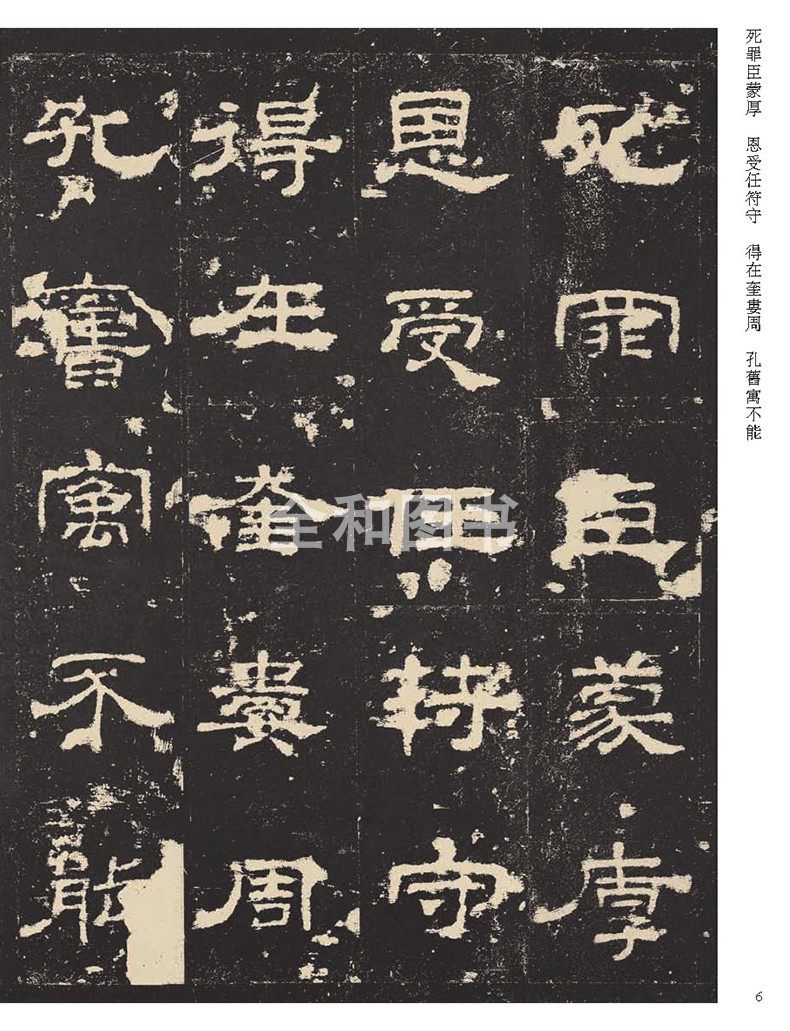 死罪臣蒙厚
恩受任符守
得在奎婁周
孔舊寓不能
死罪臣蒙厚 恩受任符守 得在奎婁周 孔舊寓不能
全和图书
6